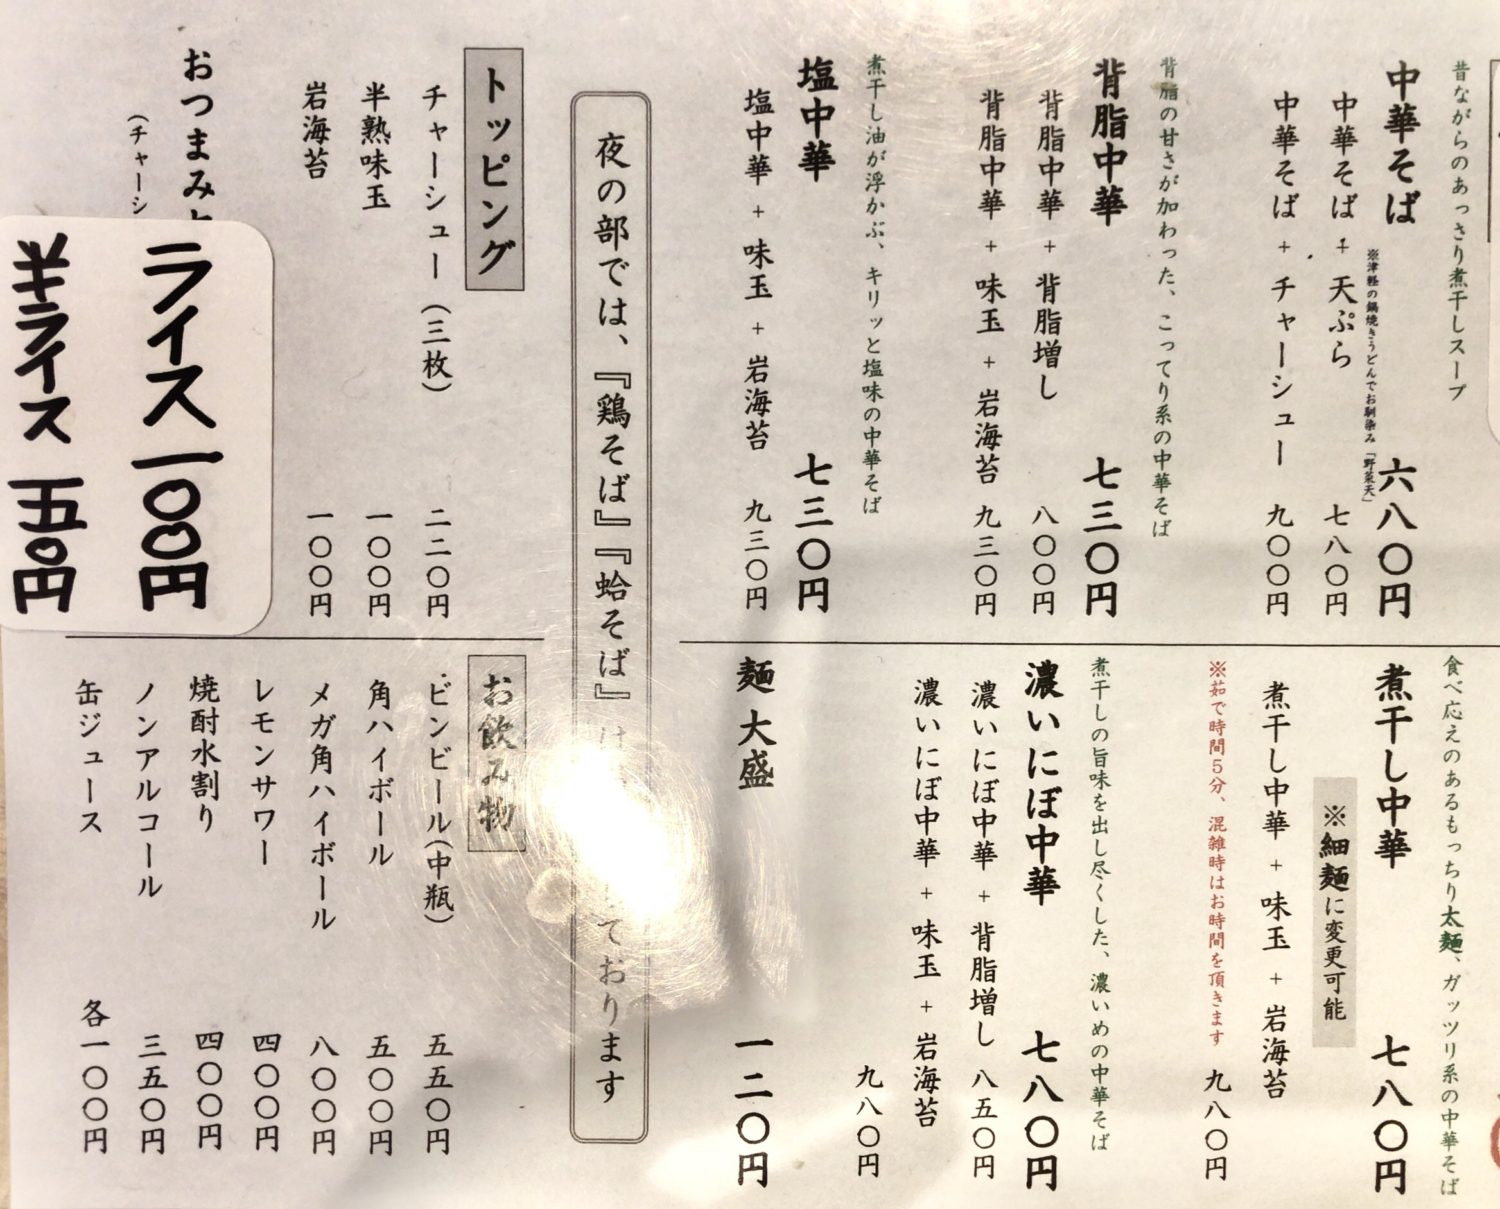 昔ながらのあっさり煮干しスープ
中華そば 六八〇円
※津軽の鍋焼きうどんでお馴染み「野菜天」
中華そば + 天ぷら 七八〇円
中華そば + チャーシュー 九〇〇円
背脂の甘さが加わった、こってり系の中華そば
背脂中華 七三〇円
背脂中華 + 背脂増し 八〇〇円
背脂中華 + 味玉 + 岩海苔 九三〇円
煮干し油が浮かぶ、キリッと塩味の中華そば
塩中華 七三〇円
塩中華 + 味玉 + 岩海苔 九三〇円
食べ応えのあるもっちり太麺、ガッツリ系の中華そば
煮干し中華 七八〇円
※細麺に変更可能
煮干し中華 + 味玉 + 岩海苔
九八〇円
※茹で時間5分、混雑時はお時間を頂きます
煮干しの旨味を出し尽くした、濃いめの中華そば
濃いにぼ中華 七八〇円
濃いにぼ中華 + 背脂増し 八五〇円
濃いにぼ中華 + 味玉 + 岩海苔
九八〇円
麺大盛 一二〇円
夜の部では、『鶏そば』『蛤そば』は ております
トッピング
チャーシュー(三枚) 二二〇円
半熟味玉 一〇〇円
岩海苔 一〇〇円
おつまみ
(チャーシ
ライス 一〇〇円
半ライス 五〇円
お飲み物
ビンビール(中瓶) 五五〇円
角ハイボール 五〇〇円
メガ角ハイボール 八〇〇円
レモンサワー 四〇〇円
焼酎水割り 四〇〇円
ノンアルコール 三五〇円
缶ジュース 各一〇〇円